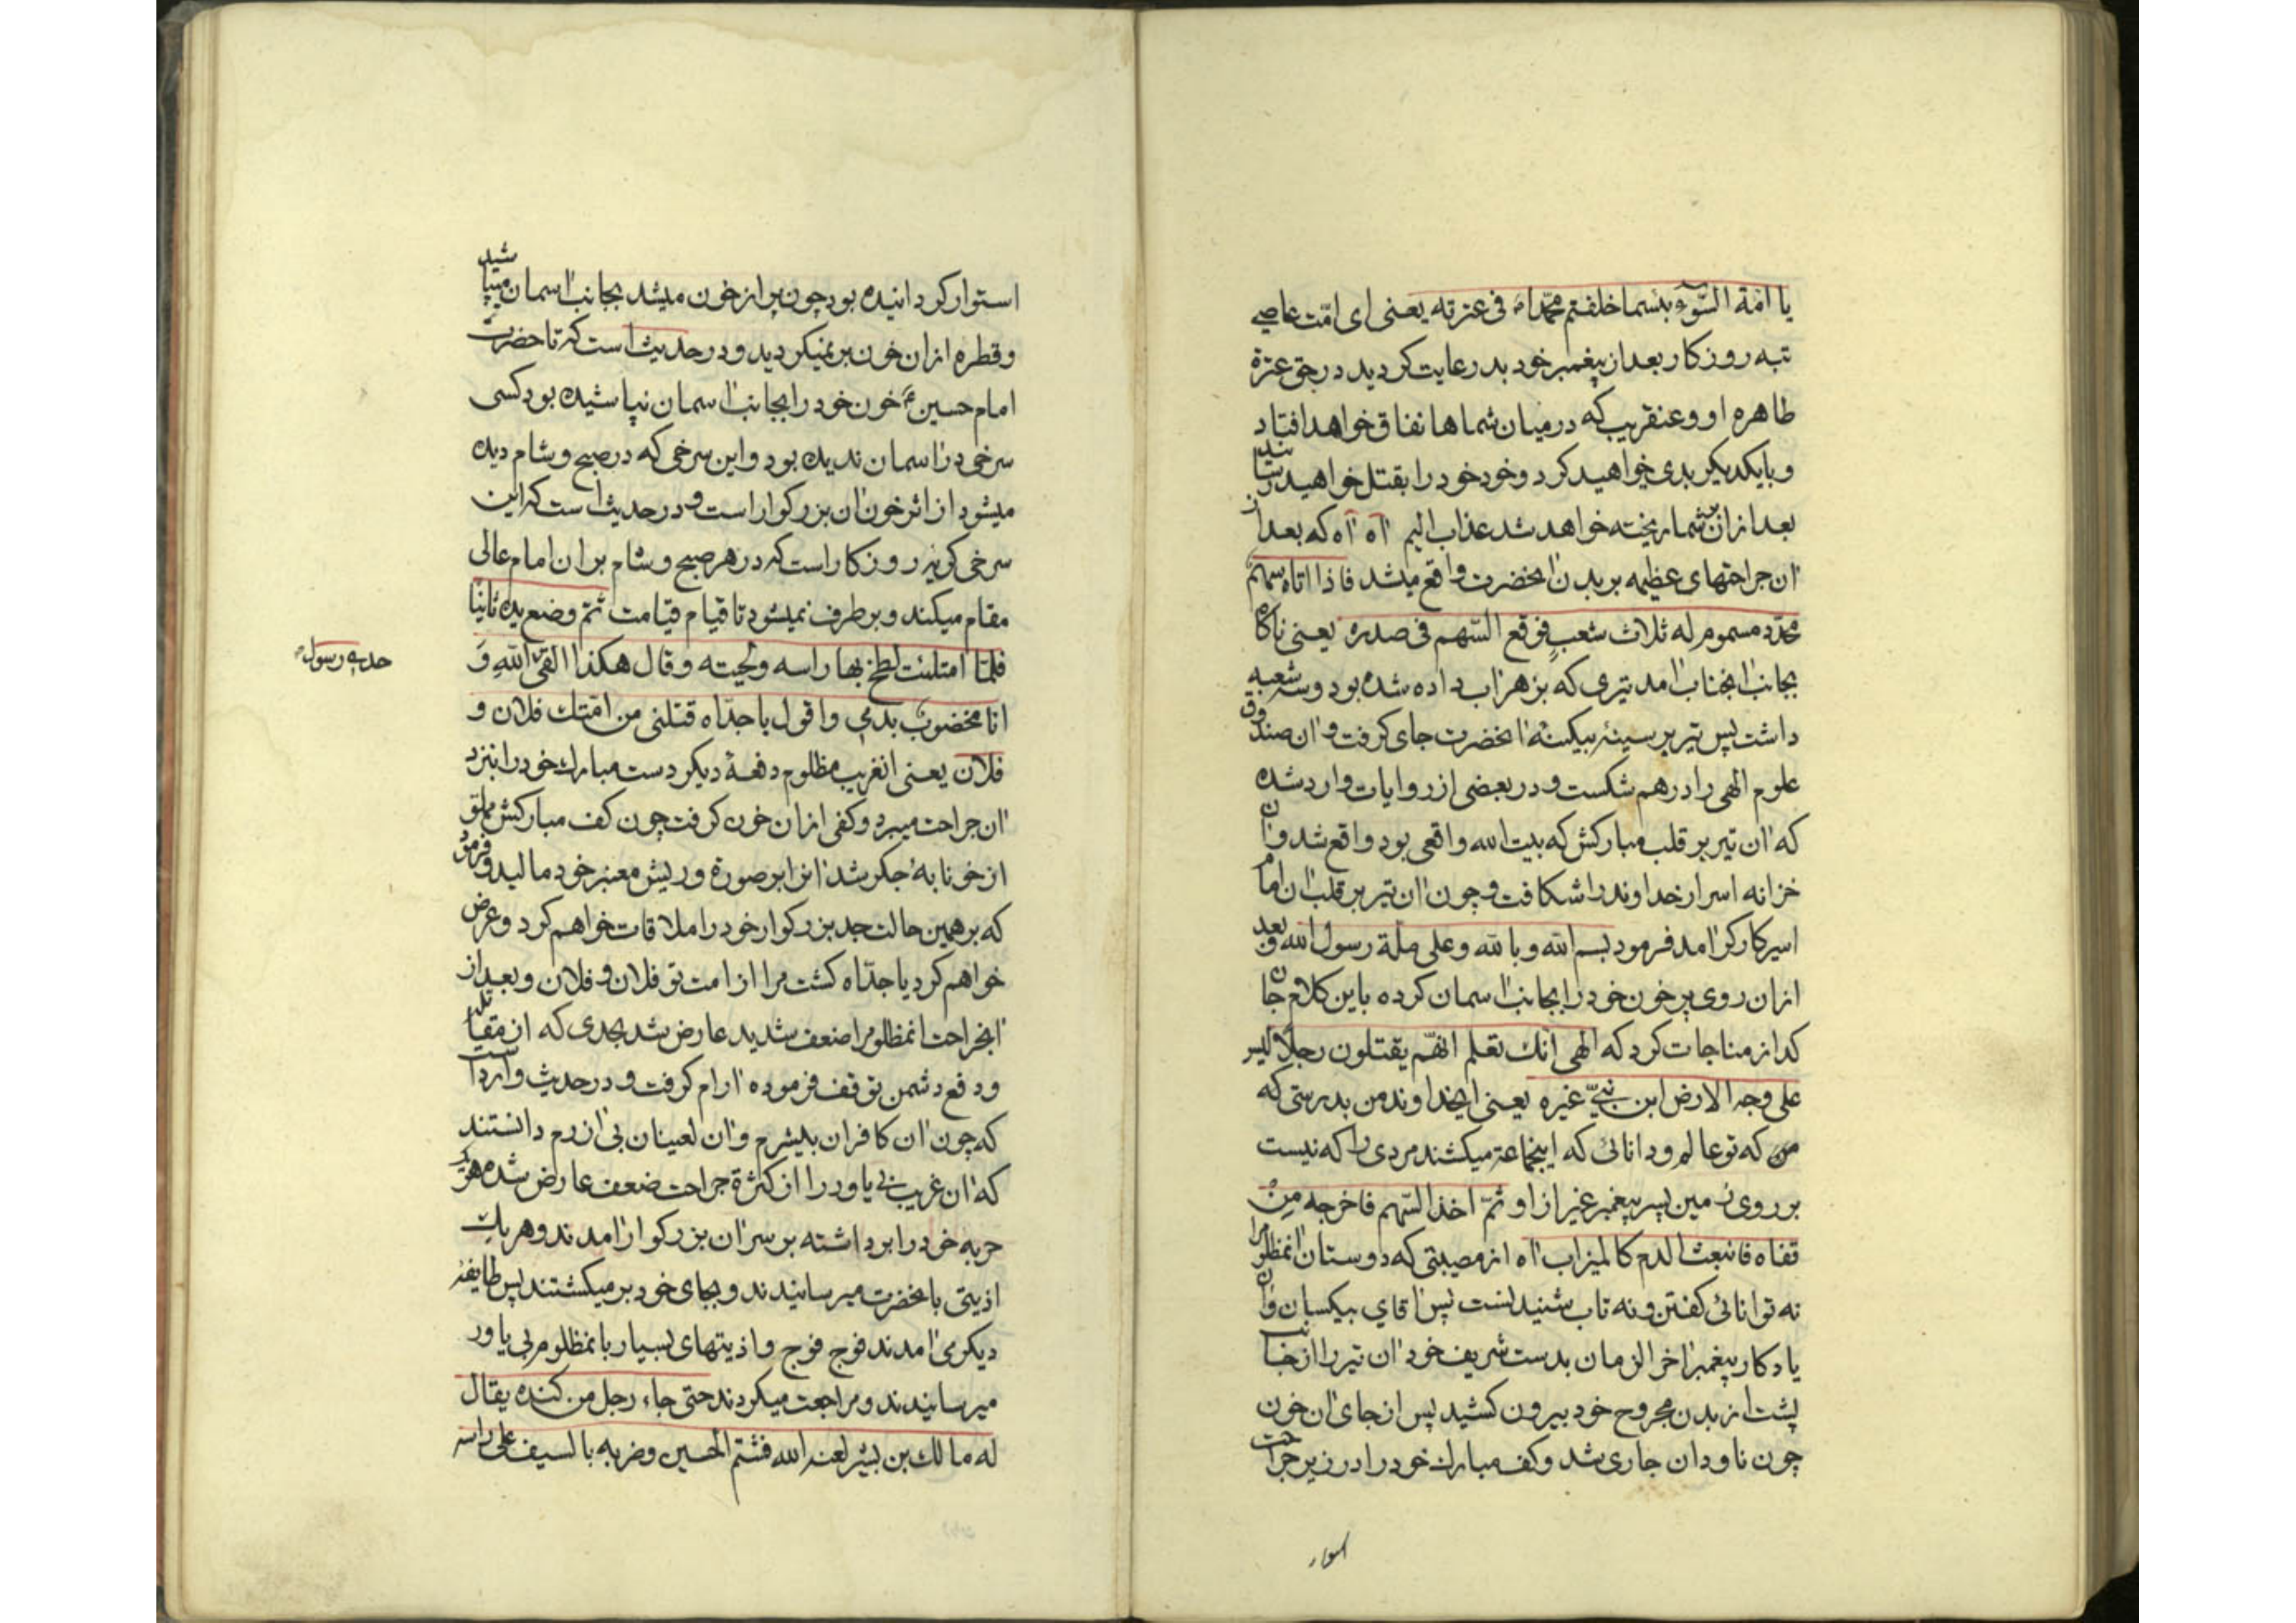 یا امّة السّوٓء بئسما خلفتم محمّداً ص فی عترته یعنی ای امّت عاصی
تبه روزکار بعد از پیغمبر خود بد رعایت کردید در حق عترة
طاهره او و عنقریب که در میان شماها نفاق خواهد افتاد
و بایکدیکر بدی خواهید کرد و خود خود را بقتل خواهید رسانید
بعد ازان بر شما ریخته خواهد شد عذاب الیم آه آه که بعد از
آن جراحتهای عظیمه بر بدن آنحضرت واقع میشد فاذا اتاه سهم
محدّد مسموم له ثلاث شعبٍ فوقع السّهم فی صدره یعنی ناکاه
بجانب آنجناب آمد تیری که بزهر آب داده شده بود و سه شعبه
داشت پس تیر بر سینهٔ بیکینهٔ آنحضرت جای کرفت و آن صندوق
علوم الهی را درهم شکست و در بعضی از روایات وارد شده
که آن تیر بر قلب مبارکش که بیت الله واقعی بود واقع شد و آن
خزانه اسرار خداوند را شکافت و چون آن تیر بر قلب آن امام
اسیر کارکر آمد فرمود بسم الله و بالله و علی ملة رسول الله و بعد
ازان روی پر خون خود را بجانب آسمان کرده باین کلام جان
کداز مناجات کرد که الهی انّك تعلم انّهم یقتلون رجلاً لیس
علی وجه الارض ابن نبیّ غیره یعنی ایخداوند من بدرستی که
من که تو عالم و دانائی که اینجماعة میکشند مردی را که نیست
بر روی زمین پسر پیغمبر غیر از او ثمّ اخذ السّهم فاخرجه من
قفاه فانبعث الدم کالمیزاب آه از مصیبتی که دوستان آنمظلوم را
نه توانائی کفتن و نه تاب شنیدنست پس آقای بیکسان و آن
یادکار پیغمبر آخر الزمان بدست شریف خود آن تیر را از جانب
پشت از بدن مجروح خود بیرون کشید پس از جای آن خون
چون ناودان جاری شد و کف مبارك خود را در زیر جراحت
استوار
استوار کردانیده بود چون پر از خون میشد بجانب آسمان میپاشید
و قطره ازان خون بر نمیکردید و در حدیث است که تا حضرت
امام حسین ع خون خود را بجانب آسمان نپاشیده بود کسی
سرخی در آسمان ندیده بود و این سرخی که در صبح و شام دیده
میشود از اثر خون آن بزرکوار است و در حدیث است که این
سرخی کریهٔ روزکار است که در هر صبح و شام بر آن امام عالی
مقام میکند و بر طرف نمیشود تا قیام قیامت ثمّ وضع یده ثانیًا
فلمّا امتلئت لطخ بها راسه و لحیته و قال هکذا القی الله وَ
انا مخضوبٌ بدمی و اقول یا جدّاه قتلنی من امّتك فلان و
فلان یعنی آنغریب مظلوم دفعهٔ دیکر دست مبارك خود را بنزد
آن جراحت میبرد و کفی ازان خون کرفت چون کف مبارکش مملوّ
از خونابهٔ جکر شد آنرا بر صورة و ریش معنبر خود مالید و فرمود
که بر همین حالت جد بزرکوار خود را ملاقات خواهم کرد و عرض
خواهم کرد یا جدّاه کشت مرا از امت تو فلان و فلان و بعد از
آنجراحت آنمظلوم را ضعف شدید عارض شد بحدی که از مقاتله
و دفع دشمن توقف فرموده آرام کرفت و در حدیث وارد است
که چون آن کافران بیشرم و آن لعینان بی آزرم دانستند
که آن غریب بی یاور را از کثرة جراحت ضعف عارض شده هر یك
حربه خود را برداشته بر سر آن بزرکوار آمدند و هر یك
اذیتی بآنحضرت میرسانیدند و بجای خود بر میکشتند پس طایفهٔ
دیکری آمدند فوج فوج و اذیتهای بسیار بآنمظلوم بی یاور
میرسانیدند و مراجعت میکردند حتی جاء رجل من کنده یقال
له مالك بن بشر لعنه الله فشتم الحسین و ضربه بالسیف علی راسه